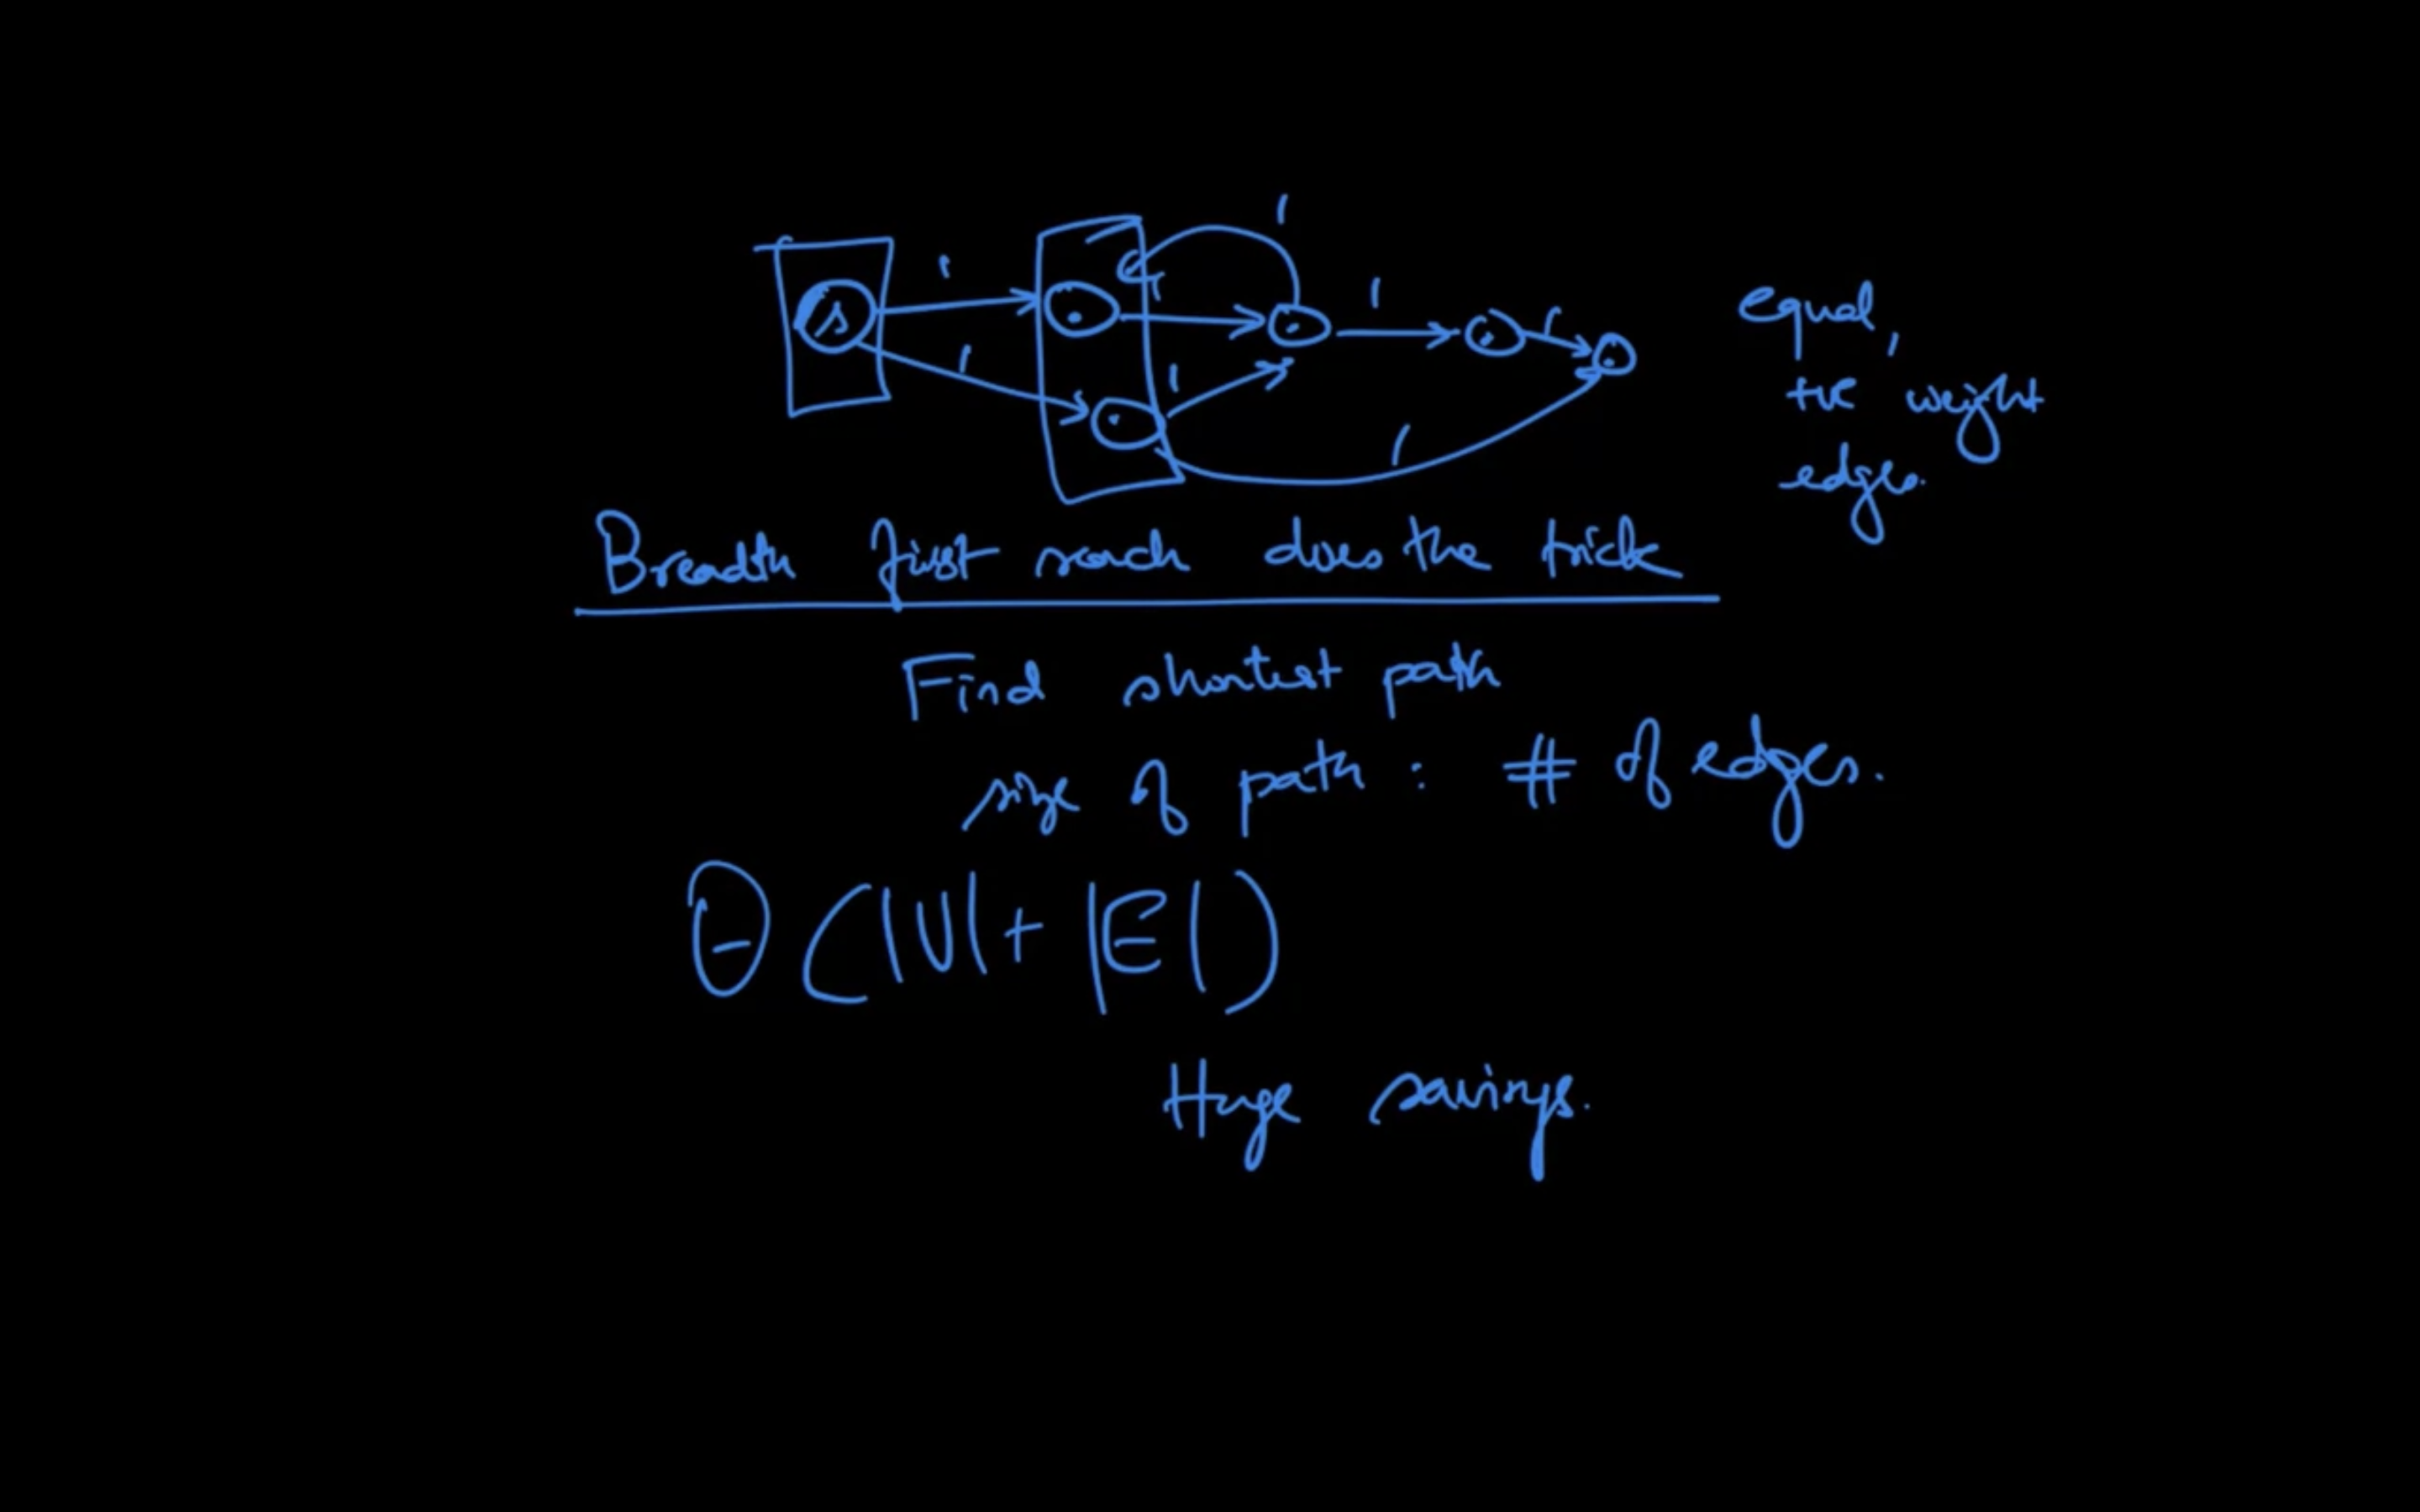 1 1 1
s 1 1 1 1
1
equal,
+ve weight
edges.
Breadth first search does the trick
Find shortest path
size of path : # of edges.
Θ(|V|+|E|)
Huge savings.